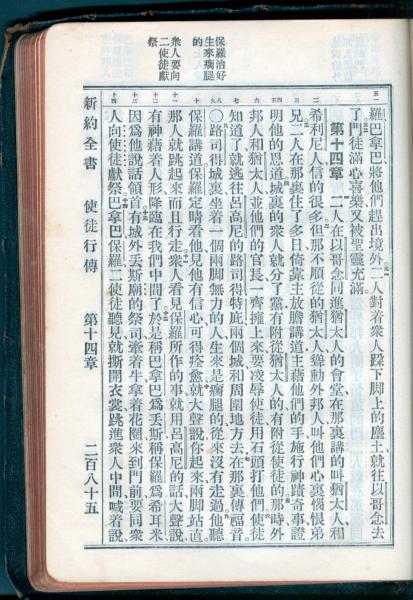 保羅治好
生來瘸腿
的
衆人要向
二使徒獻
祭
羅巴拿巴、將他們趕出境外。二人對着衆人跺下脚上的塵土、就往以哥念去
了門徒滿心喜樂又被聖靈充滿。
第十四章 二人在以哥念同進猶太人的會堂在那裏講的叫猶太人和
希利尼人信的很多但那不順從的猶太人聳動外邦人叫他們心裏惱恨弟
兄二人在那裏住了多日倚靠主放膽講道主藉他們的手施行神蹟奇事證
明他的恩道城裏的衆人就分了黨有附從猶太人的有附從使徒的那時外
邦人和猶太人並他們的官長一齊擁上來要凌辱使徒用石頭打他們使徒
知道了就逃往呂高尼的路司得特庇兩個城和周圍地方去在那裏傳福音
〇路司得城裏坐着一個兩脚無力的人、生來是瘸腿的從來沒有走過他聽
保羅講道保羅定睛看他見他有信心可得痊愈就大聲說你起來兩脚站直。
那人就跳起來而且行走衆人看見保羅所作的事就用呂高尼的話大聲說
有神藉着人形降臨在我們中間了於是稱巴拿巴爲丟斯稱保羅爲希耳米
因爲他說話領首有城外丟斯廟的祭司牽着牛拿着花圈來到門前要同衆
人向使徒獻祭巴拿巴保羅二使徒聽見就撕開衣裳跳進衆人中間喊着說
新約全書 使徒行傳 第十四章 二百八十五